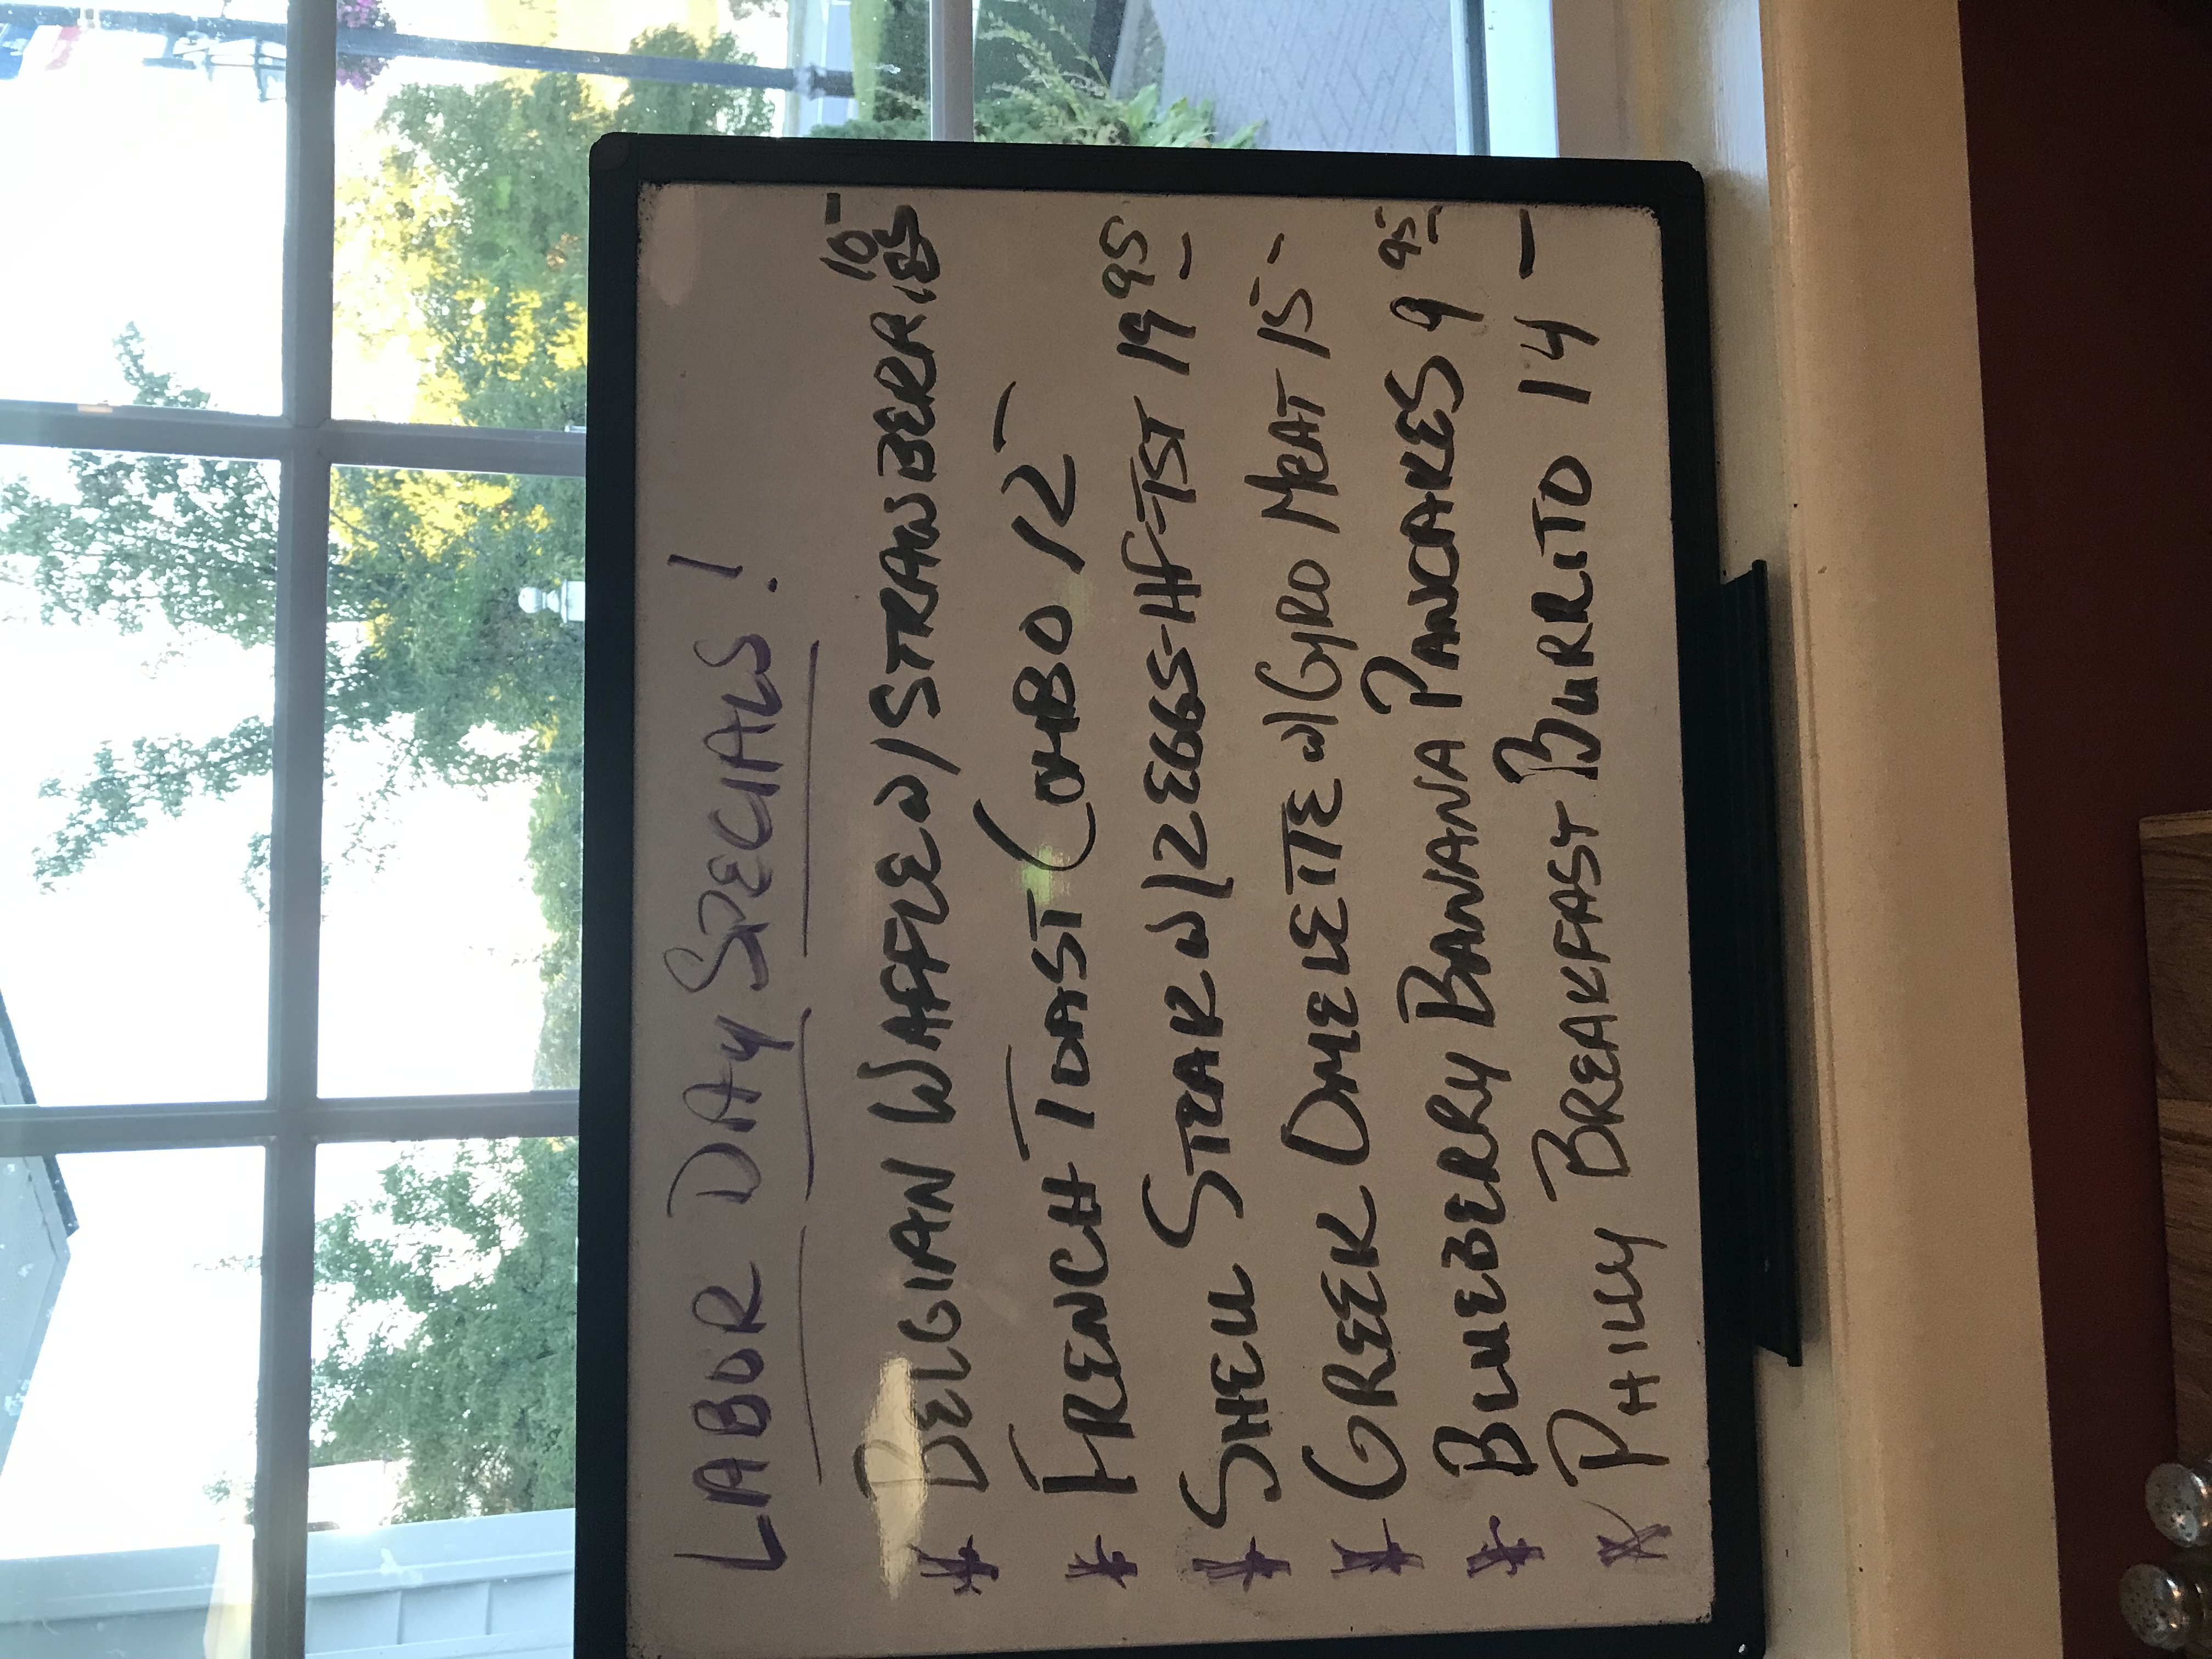 LABOR DAY SPECIALS!
* BELGIAN WAFFLE W/STRAWBERRIES 10-
* FRENCH TOAST COMBO 12-
* SHELL STEAK W/2 EGGS-HF-TST 19 95
* GREEK OMELETTE W/GYRO MEAT 15-
* BLUEBERRY BANANA PANCAKES 9 95
* PHILLY BREAKFAST BURRITO 14-